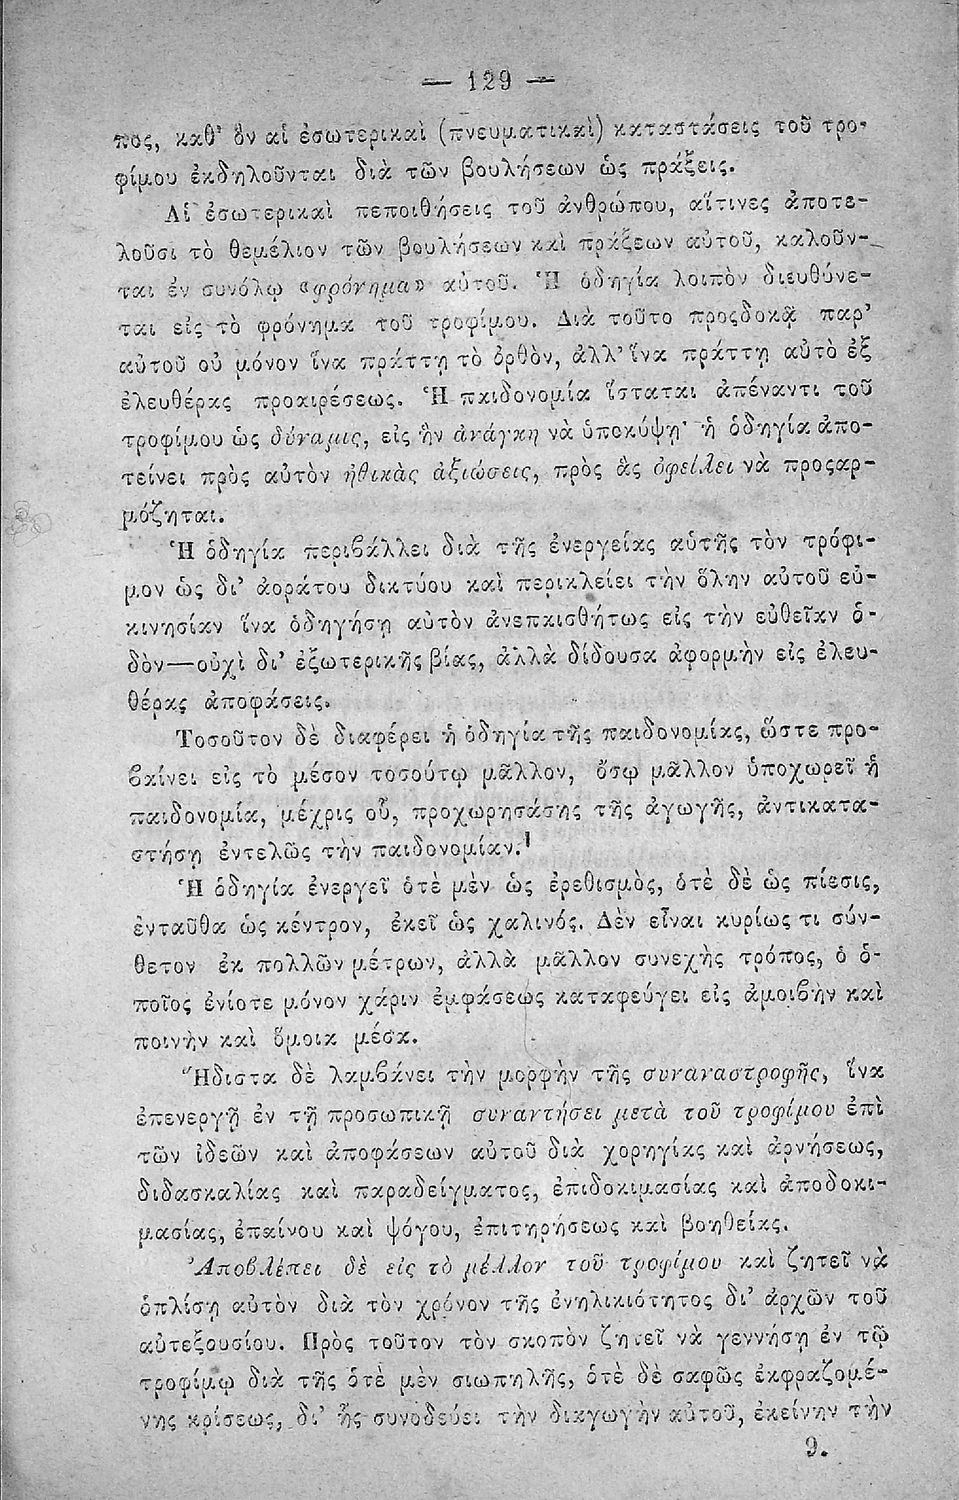 — 129 —
πος, καθ' ὃν αἱ ἐσωτερικαὶ (πνευματικαὶ) καταστάσεις τοῦ τρο-
φίμου ἐκδηλοῦνται διὰ τῶν βουλήσεων ὡς πράξεις.
Αἱ ἐσωτερικαὶ πεποιθήσεις τοῦ ἀνθρώπου, αἵτινες ἀποτε-
λοῦσι τὸ θεμέλιον τῶν βουλήσεων καὶ πράξεων αὑτοῦ, καλοῦν-
ται ἐν συνόλῳ «φρόνημα» αὐτοῦ. Ἡ ὁδηγία λοιπὸν διευθύνε-
ται εἰς τὸ φρόνημα τοῦ τροφίμου. Διὰ τοῦτο προςδοκᾷ παρ'
αὐτοῦ οὐ μόνον ἵνα πράττῃ τὸ ὀρθὸν, ἀλλ' ἵνα πράττῃ αὐτὸ ἐξ
ἐλευθέρας προαιρέσεως. Ἡ παιδονομία ἵσταται ἀπέναντι τοῦ
τροφίμου ὡς δύναμις, εἰς ἣν ἀνάγκη νὰ ὑποκύψῃ· ἡ ὁδηγία ἀπο-
τείνει πρὸς αὐτὸν ἠθικὰς ἀξιώσεις, πρὸς ἃς ὀφείλει νὰ προςαρ-
μόζηται.
Ἡ ὁδηγία περιβάλλει διὰ τῆς ἐνεργείας αὑτῆς τὸν τρόφι-
μον ὡς δι' ἀοράτου δικτύου καὶ περικλείει τὴν ὅλην αὐτοῦ εὐ-
κινησίαν ἵνα ὁδηγήσῃ αὐτὸν ἀνεπαισθήτως εἰς τὴν εὐθεῖαν ὁ-
δὸν—οὐχὶ δι' ἐξωτερικῆς βίας, ἀλλὰ δίδουσα ἀφορμὴν εἰς ἐλευ-
θέρας ἀποφάσεις.
Τοσοῦτον δὲ διαφέρει ἡ ὁδηγία τῆς παιδονομίας, ὥστε προ-
βαίνει εἰς τὸ μέσον τοσούτῳ μᾶλλον, ὅσῳ μᾶλλον ὑποχωρεῖ ἡ
παιδονομία, μέχρις οὗ, προχωρησάσης τῆς ἀγωγῆς, ἀντικατα-
στήσῃ ἐντελῶς τὴν παιδονομίαν.
Ἡ ὁδηγία ἐνεργεῖ ὁτὲ μὲν ὡς ἐρεθισμὸς, ὁτὲ δὲ ὡς πίεσις,
ἐνταῦθα ὡς κέντρον, ἐκεῖ ὡς χαλινός. Δὲν εἶναι κυρίως τι σύν-
θετον ἐκ πολλῶν μέτρων, ἀλλὰ μᾶλλον συνεχὴς τρόπος, ὁ ὁ-
ποῖος ἐνίοτε μόνον χάριν ἐμφάσεως καταφεύγει εἰς ἀμοιβὴν καὶ
ποινὴν καὶ ὅμοια μέσα.
Ἥδιστα δὲ λαμβάνει τὴν μορφὴν τῆς συναναστροφῆς, ἵνα
ἐπενεργῇ ἐν τῇ προσωπικῇ συναντήσει μετὰ τοῦ τροφίμου ἐπὶ
τῶν ἰδεῶν καὶ ἀποφάσεων αὐτοῦ διὰ χορηγίας καὶ ἀρνήσεως,
διδασκαλίας καὶ παραδείγματος, ἐπιδοκιμασίας καὶ ἀποδοκι-
μασίας, ἐπαίνου καὶ ψόγου, ἐπιτηρήσεως καὶ βοηθείας.
Ἀποβλέπει δὲ εἰς τὸ μέλλον τοῦ τροφίμου καὶ ζητεῖ νὰ
ὁπλίσῃ αὐτὸν διὰ τὸν χρόνον τῆς ἐνηλικιότητος δι' ἀρχῶν τοῦ
αὐτεξουσίου. Πρὸς τοῦτον τὸν σκοπὸν ζητεῖ νὰ γεννήσῃ ἐν τῷ
τροφίμῳ διὰ τῆς ὁτὲ μὲν σιωπηλῆς, ὁτὲ δὲ σαφῶς ἐκφραζομέ-
νης κρίσεως, δι' ἧς συνοδεύει τὴν διαγωγὴν αὐτοῦ, ἐκείνην τὴν
9.